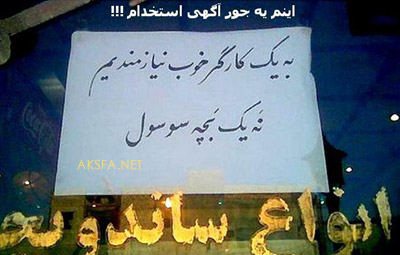 اینم یه جور آگهی استخدام !!!
به یک کارگر خوب نیازمندیم
نه یک بچه سوسول
AKSFA.NET
انواع ساندویچ